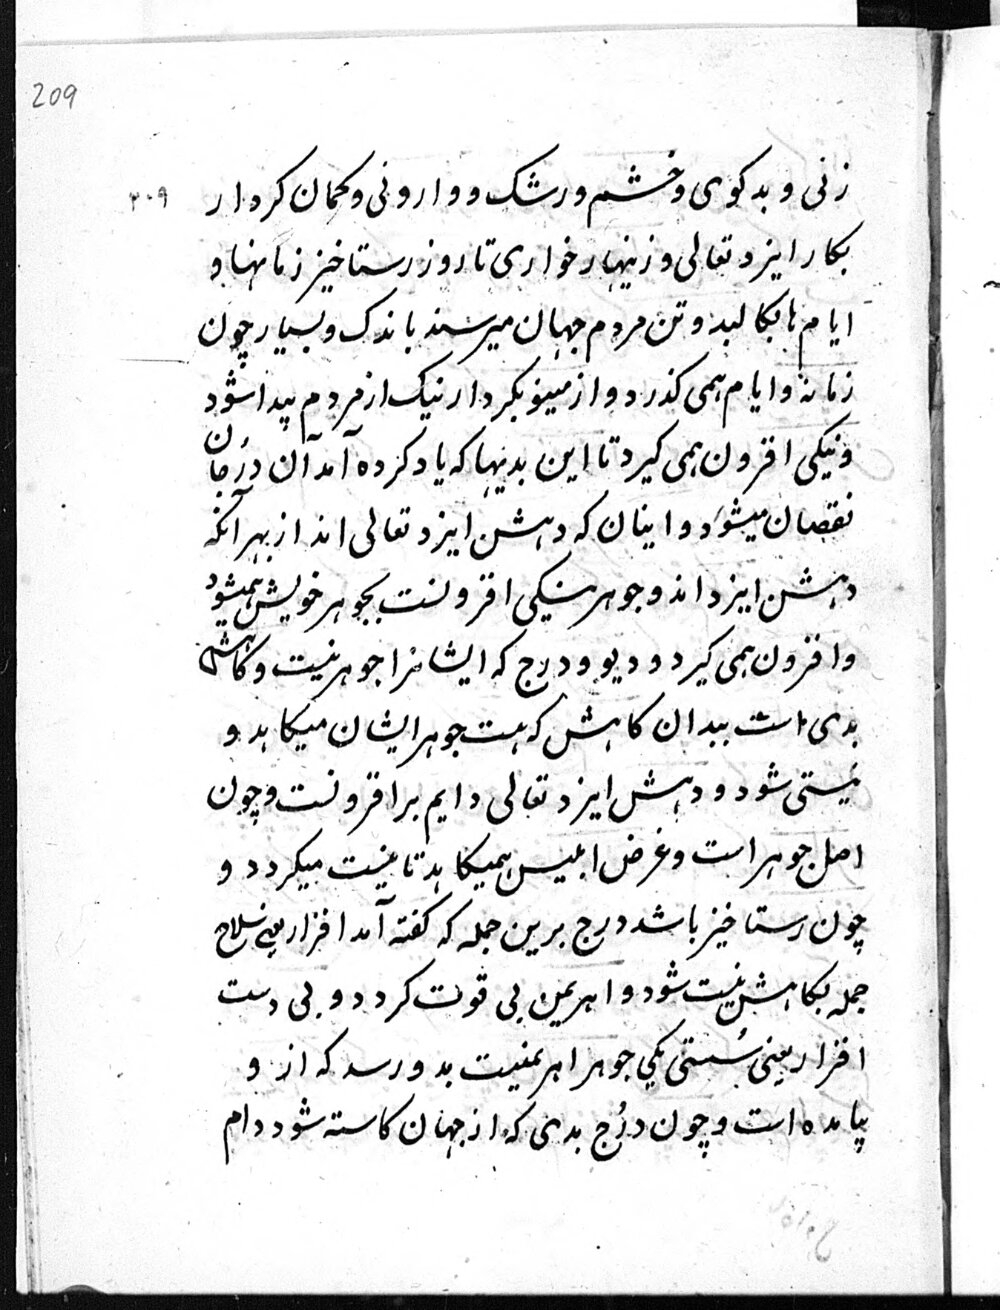 209
۲۰۹
زنی و بد کوی و خشم و رشک و وارونی و کمان کردار
بکار ایزد تعالی و زنیهار خواری تا روز رستاخیز زمانها و
ایام ها بکالبد و تن مردم جهان میرسند باندک و بسیار چون
زمانه و ایام همی کذرد و از مینو بکردار نیک از مردم پیدا شود
و نیکی افزون همی کیرد تا این بدیها که یاد کرده آمد آن در زمان
نقصان میشود و اینان که دهشن ایزد تعالی اند از بهر آنکه
دهشن ایزد اند و جوهر نیکی افزونست بجوهر خویش همیشود
و افزون همی کیرد و دیو و درج که ایشانرا جوهر نیست و کاهشی
بدی است بدان کاهش که هست جوهر ایشان میکاهد و
نیستی شود و دهش ایزد تعالی دایم بر افزونست و چون
اصل جوهر است و غرض ابلیس همیکاهد تا نیست میکردد و
چون رستاخیز باشد درج برین جمله که کفته آمد افزار یعنی سلاح
جمله بکاهش نیست شود و اهریمن بی قوت کردد و بی دست
افزار یعنی سستی یکی جوهر اهریمنیت بدو رسد که از و
پیامده است و چون درج بدی که از جهان کاسته شود دام